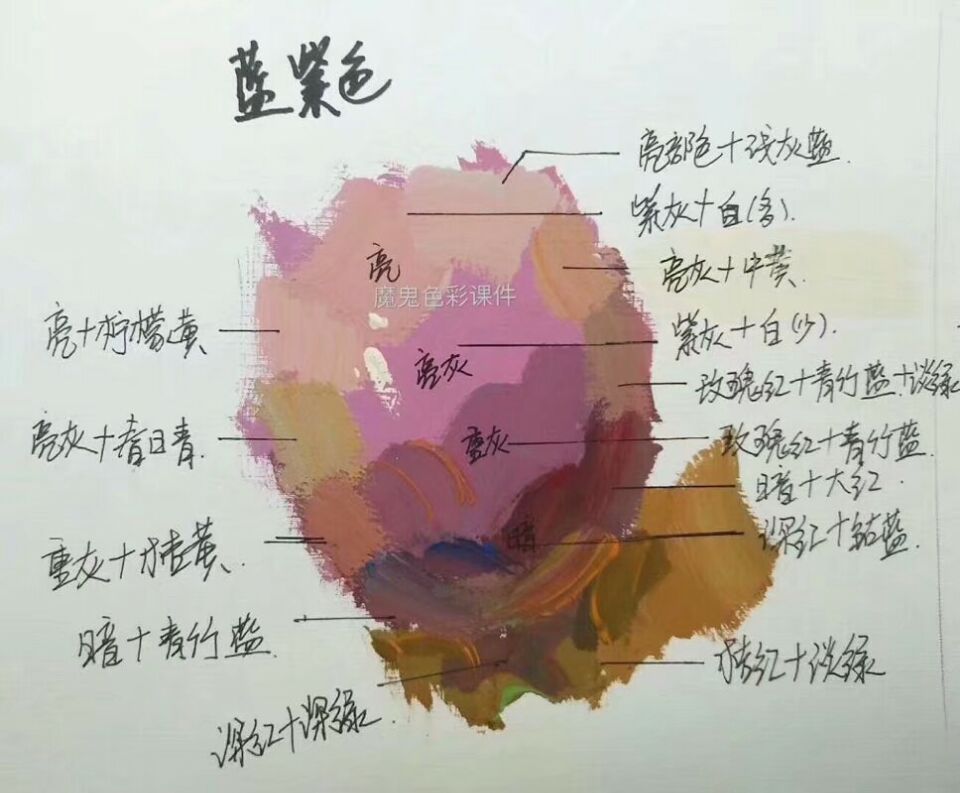 蓝紫色
亮部色+浅灰蓝.
紫灰+白(多).
亮灰+中黄.
亮
魔鬼色彩课件
亮+柠檬黄
紫灰+白(少).
亮灰
玫瑰红+青竹蓝+淡绿
亮灰+青.
重灰
玫瑰红+青竹蓝.
暗+大红.
暗
深红+钴蓝.
重灰+桔黄.
暗+青竹蓝.
桔红+淡绿
深红+深绿.